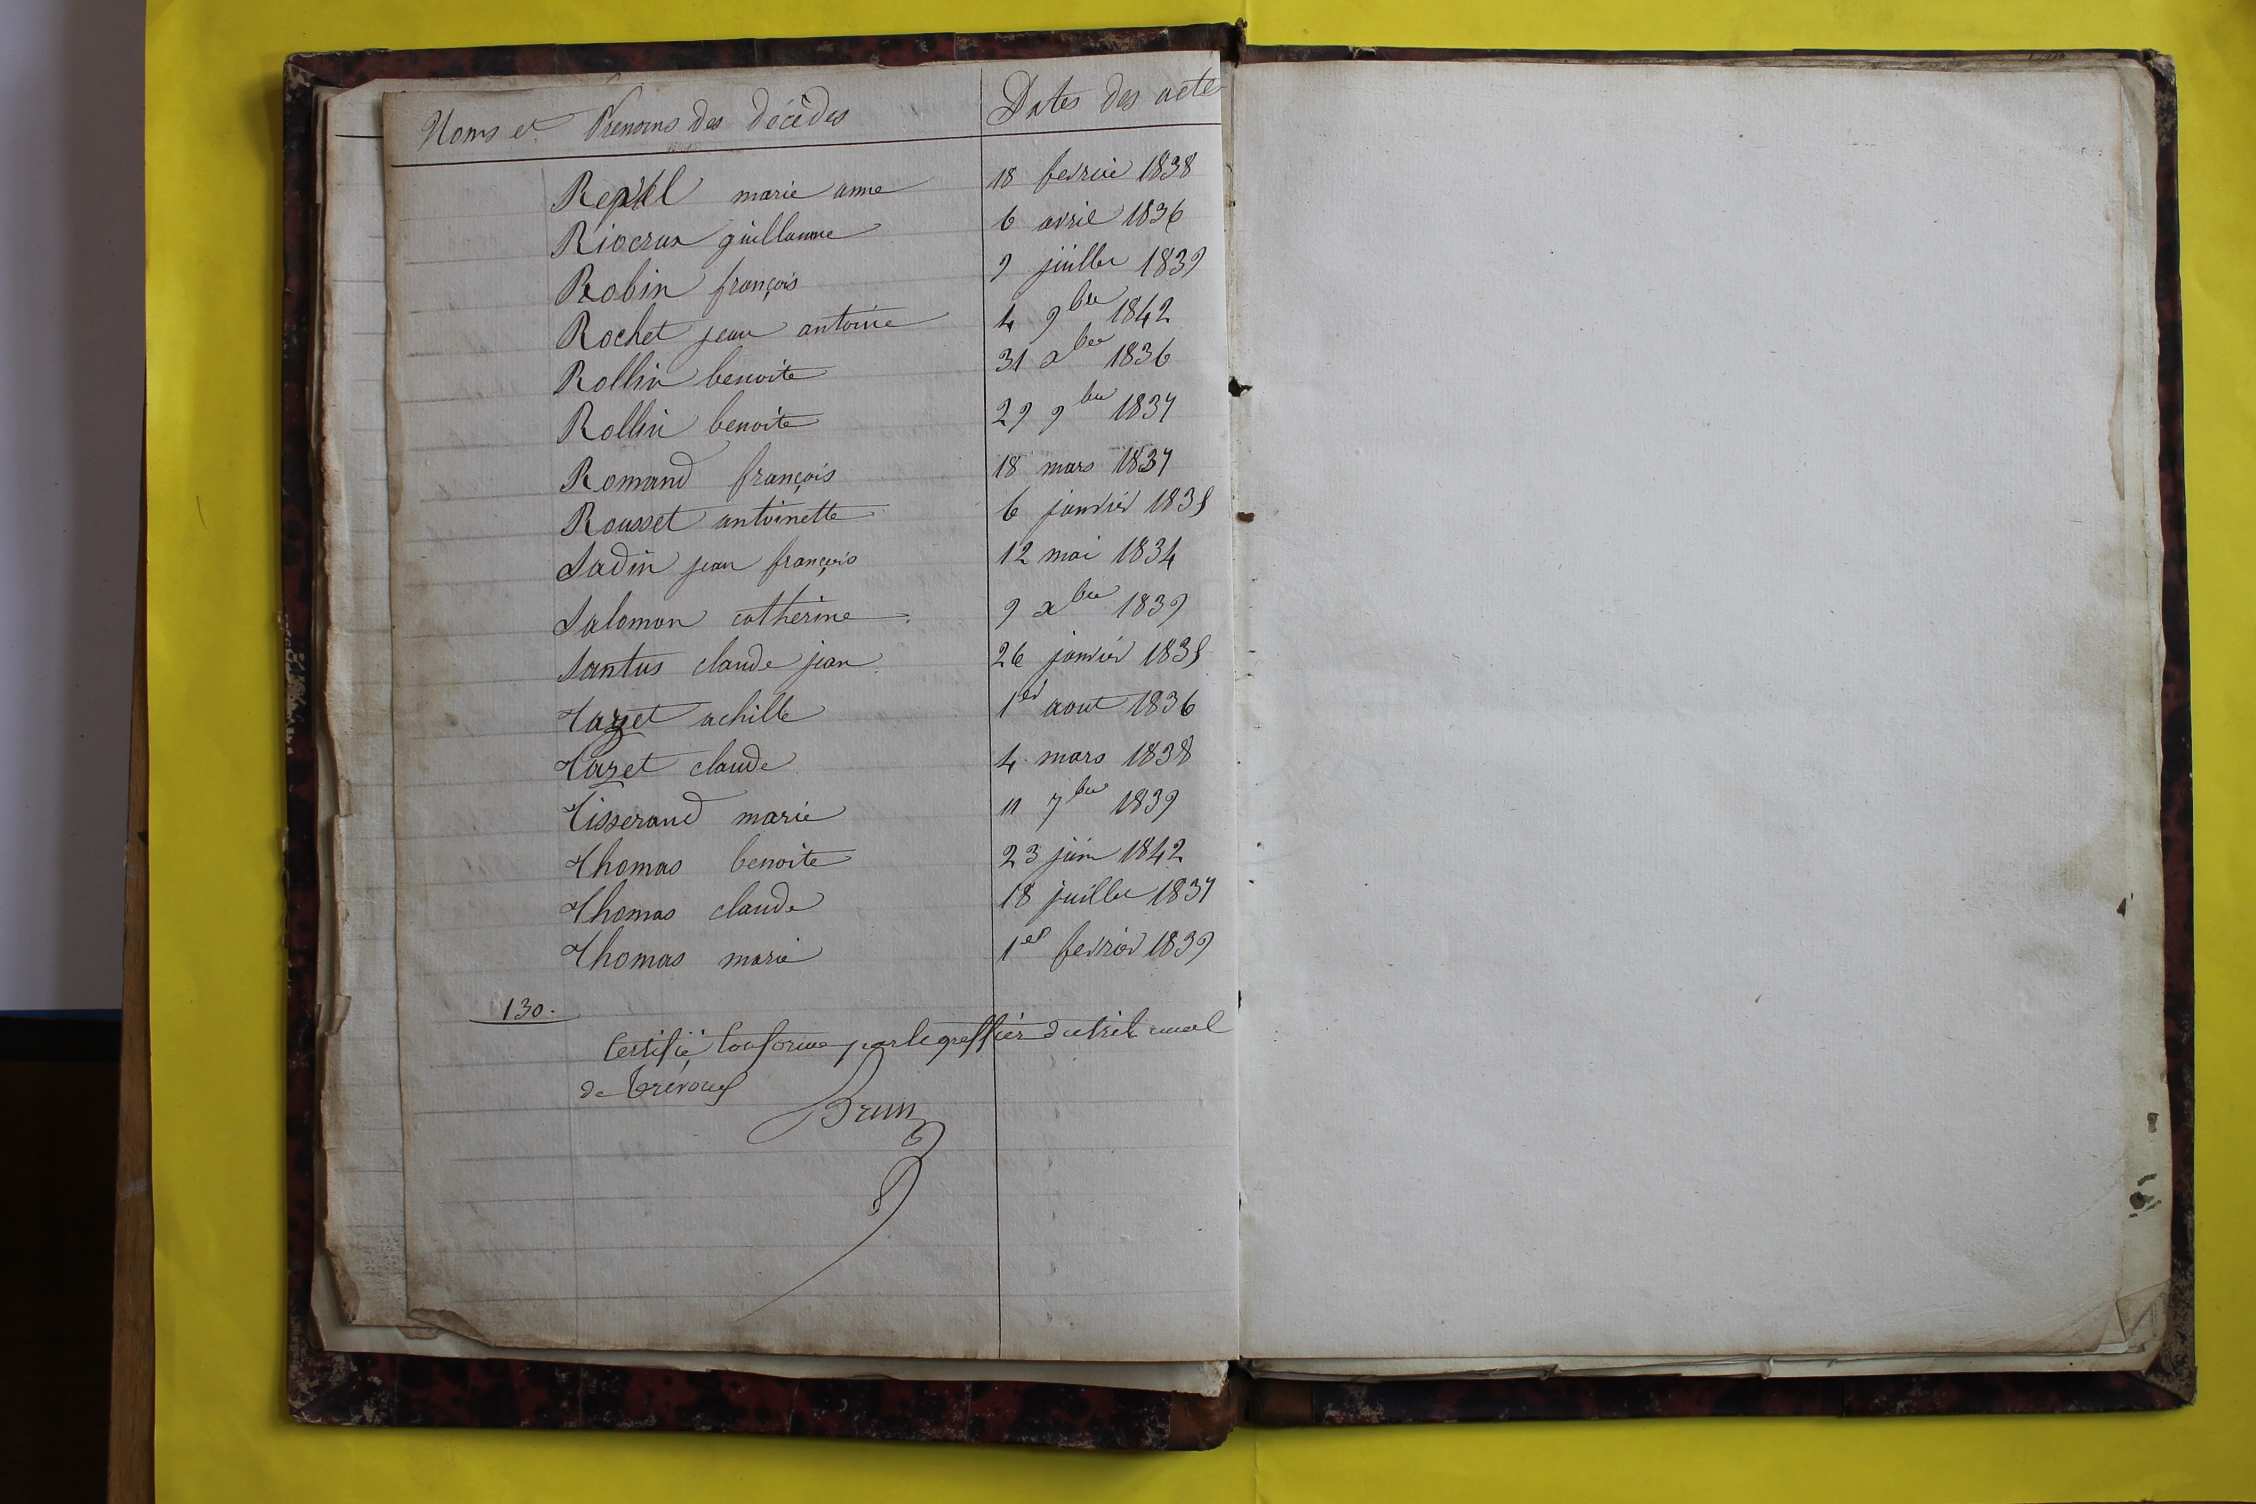 Noms et Prenoms des décèdés Dates des acte
marie anne 18 fevrier 1838
Riocrux guillaume 6 avril 1836
Robin françois 9 juillet 1839
Rochet jean antoine 4 9bre 1842
Rollin benoite 31 xbre 1836
Rollin benoite 29 9bre 1837
Romand françois 18 mars 1837
Rousset antoinette 6 janvier 1835
Sadin jean françois 12 mai 1834
Salomon catherine 9 xbre 1839
Santus claude jean 26 janvier 1835
Tazet achille 1er aout 1836
Tazet claude 4 mars 1838
Tisserand marie 11 7bre 1839
Thomas benoite 23 juin 1842
Thomas claude 18 juillet 1837
Thomas marie 1er fevrier 1839
130.
Certifié Conforme par le greffier du trib. civil
de Trévoux
Brun